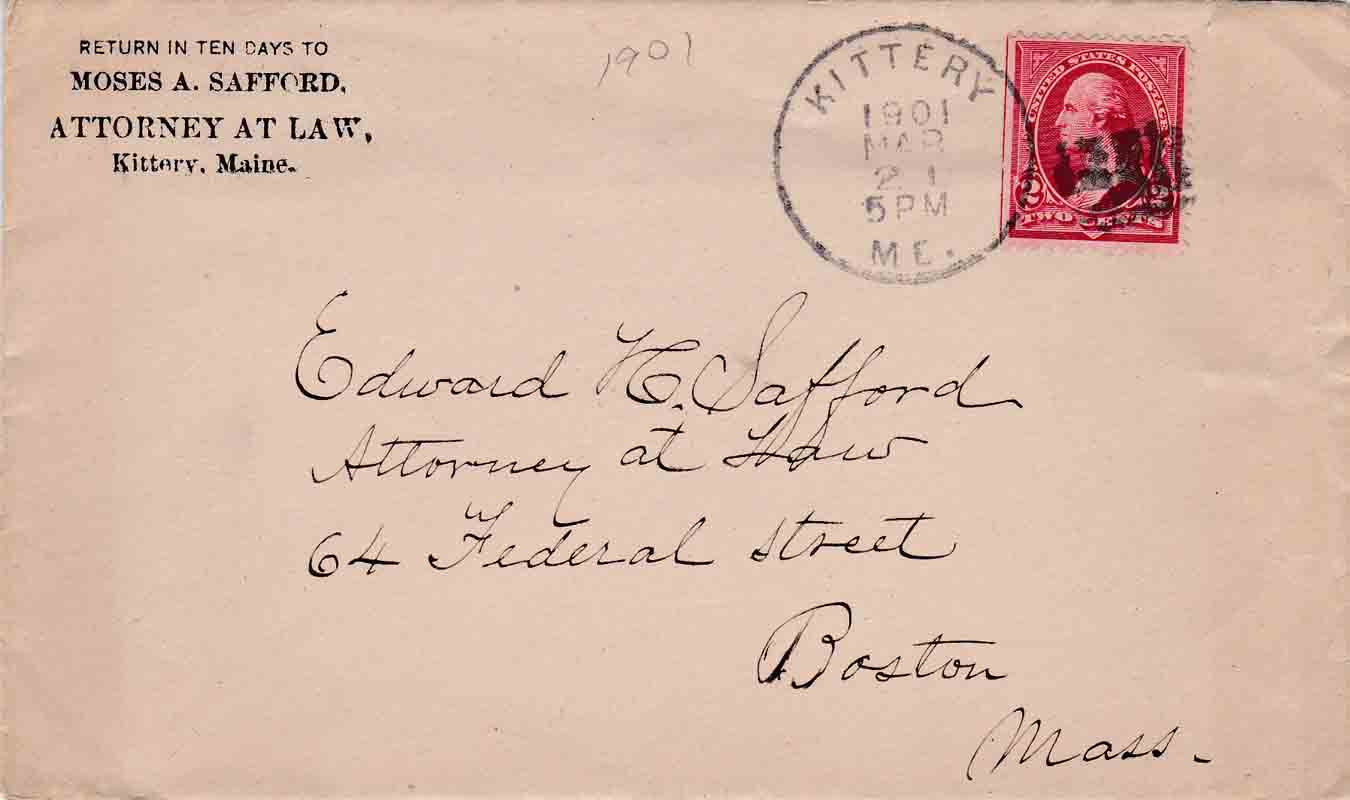 RETURN IN TEN DAYS TO
MOSES A. SAFFORD,
ATTORNEY AT LAW,
Kittery, Maine.
1901
KITTERY
1901
MAR
21
5 PM
ME.
UNITED STATES POSTAGE
2 2
TWO CENTS
Edward H. Safford
Attorney at Law
64 Federal Street
Boston
Mass.